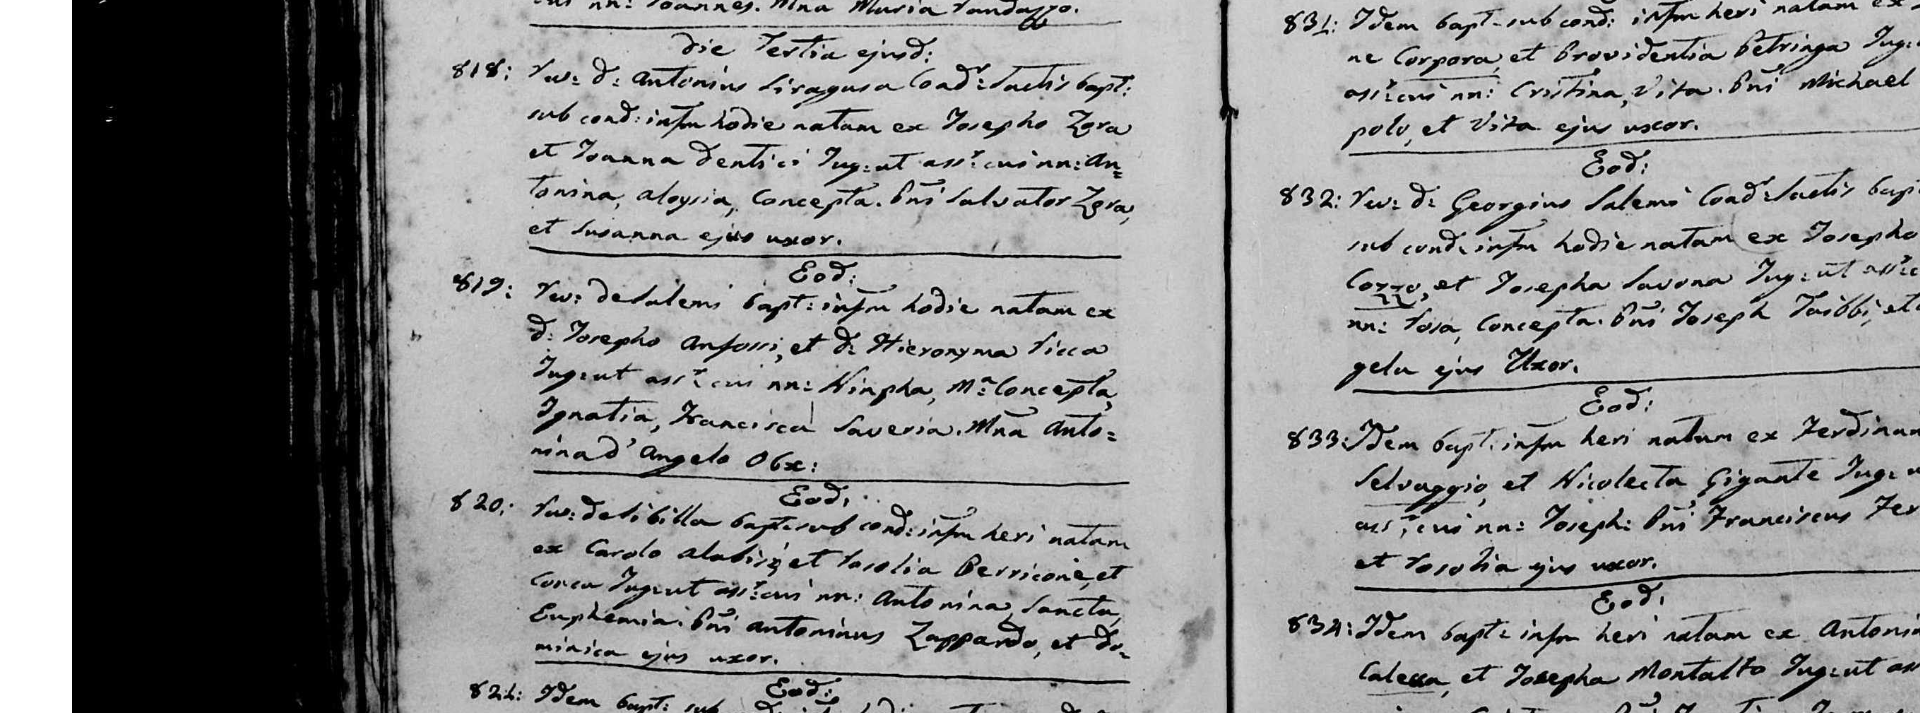 nn: Joannes. Mna Maria Vandazzo.
Die Tertia ejusd:
818: Rev: D: Antonius Siragusa Coad: Sactis bapt:
sub cond: infm hodie natam ex Josepho Zora
et Joanna Dentici Jug: ut asst: cui nn: An=
tonina, Aloysia, Concepta. Pni Salvator Zora,
et Susanna ejus uxor.
Eod:
819: Rev: de Salemi bapt: infm hodie natam ex
D: Josepho Anfossi, et D: Hieronyma Sicca
Jug: ut asst: cui nn: Ninpha, Ma Concepta,
Ignatia, Francisca Saveria. Mna Anto=
nina d' Angelo Obx:
Eod:
820: Rev: de Sibilla bapt: sub cond: infm heri natam
ex Carolo et Rosolia Perricone, et
Conca Jug: ut asst: cui nn: Antonina, Sancta,
Euphemia. Pni Antoninus Zappardo, et Do=
minica ejus uxor.
Eod:
821: Idem bapt: sub
831: Idem bapt: sub cond: infm heri natam ex
ne Corpora, et Providentia Petringa Jug:
asst: cui nn: Cristina, Vita. Pni Michael
polo, et Vita ejus uxor.
Eod:
832: Rev: D: Georgius Salemi Coad: Sactis bapt
sub cond: infm hodie natam ex Josepho
Cozzo, et Josepha Savona Jug: ut asst: c
nn: Rosa, Concepta. Pni Joseph Taibbi, et
gela ejus Uxor.
Eod:
833: Idem bapt: infm heri natum ex Ferdinan
Selvaggio, et Nicolecta Gigante Jug: u
asst: cui nn: Joseph: Pni Franciscus Fer
et Rosolia ejus uxor.
Eod:
834: Idem bapt: infm heri natam ex Antoni
et Josepha Montalto Jug: ut ass